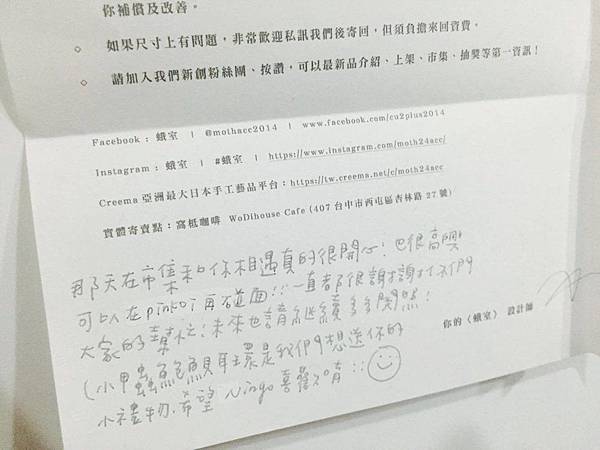 你補償及改善。
◇ 如果尺寸上有問題，非常歡迎私訊我們後寄回，但須負擔來回資費。
◇ 請加入我們新創粉絲團、按讚，可以最新品介紹、上架、市集、抽獎等第一資訊！
Facebook : 蛾室 | @mothacc2014 | www.facebook.com/cu2plus2014
Instagram : 蛾室 | #蛾室 | https://www.instagram.com/moth24acc/
Creema 亞洲最大日本手工藝品平台：https://tw.creema.net/c/moth24acc
實體寄賣點：窩柢咖啡 WoDihouse Cafe (407 台中市西屯區杏林路 27 號)
那天在市集和你相遇真的很開心！也很高興
可以在 pinkoi 再碰面!!! 一直都很謝謝你們
大家的 未來也請繼續多多關照！
(小甲蟲魚魚貝耳環是我們想送你的
小禮物，希望 Ningo 喜歡唷
你的〈蛾室〉 設計師